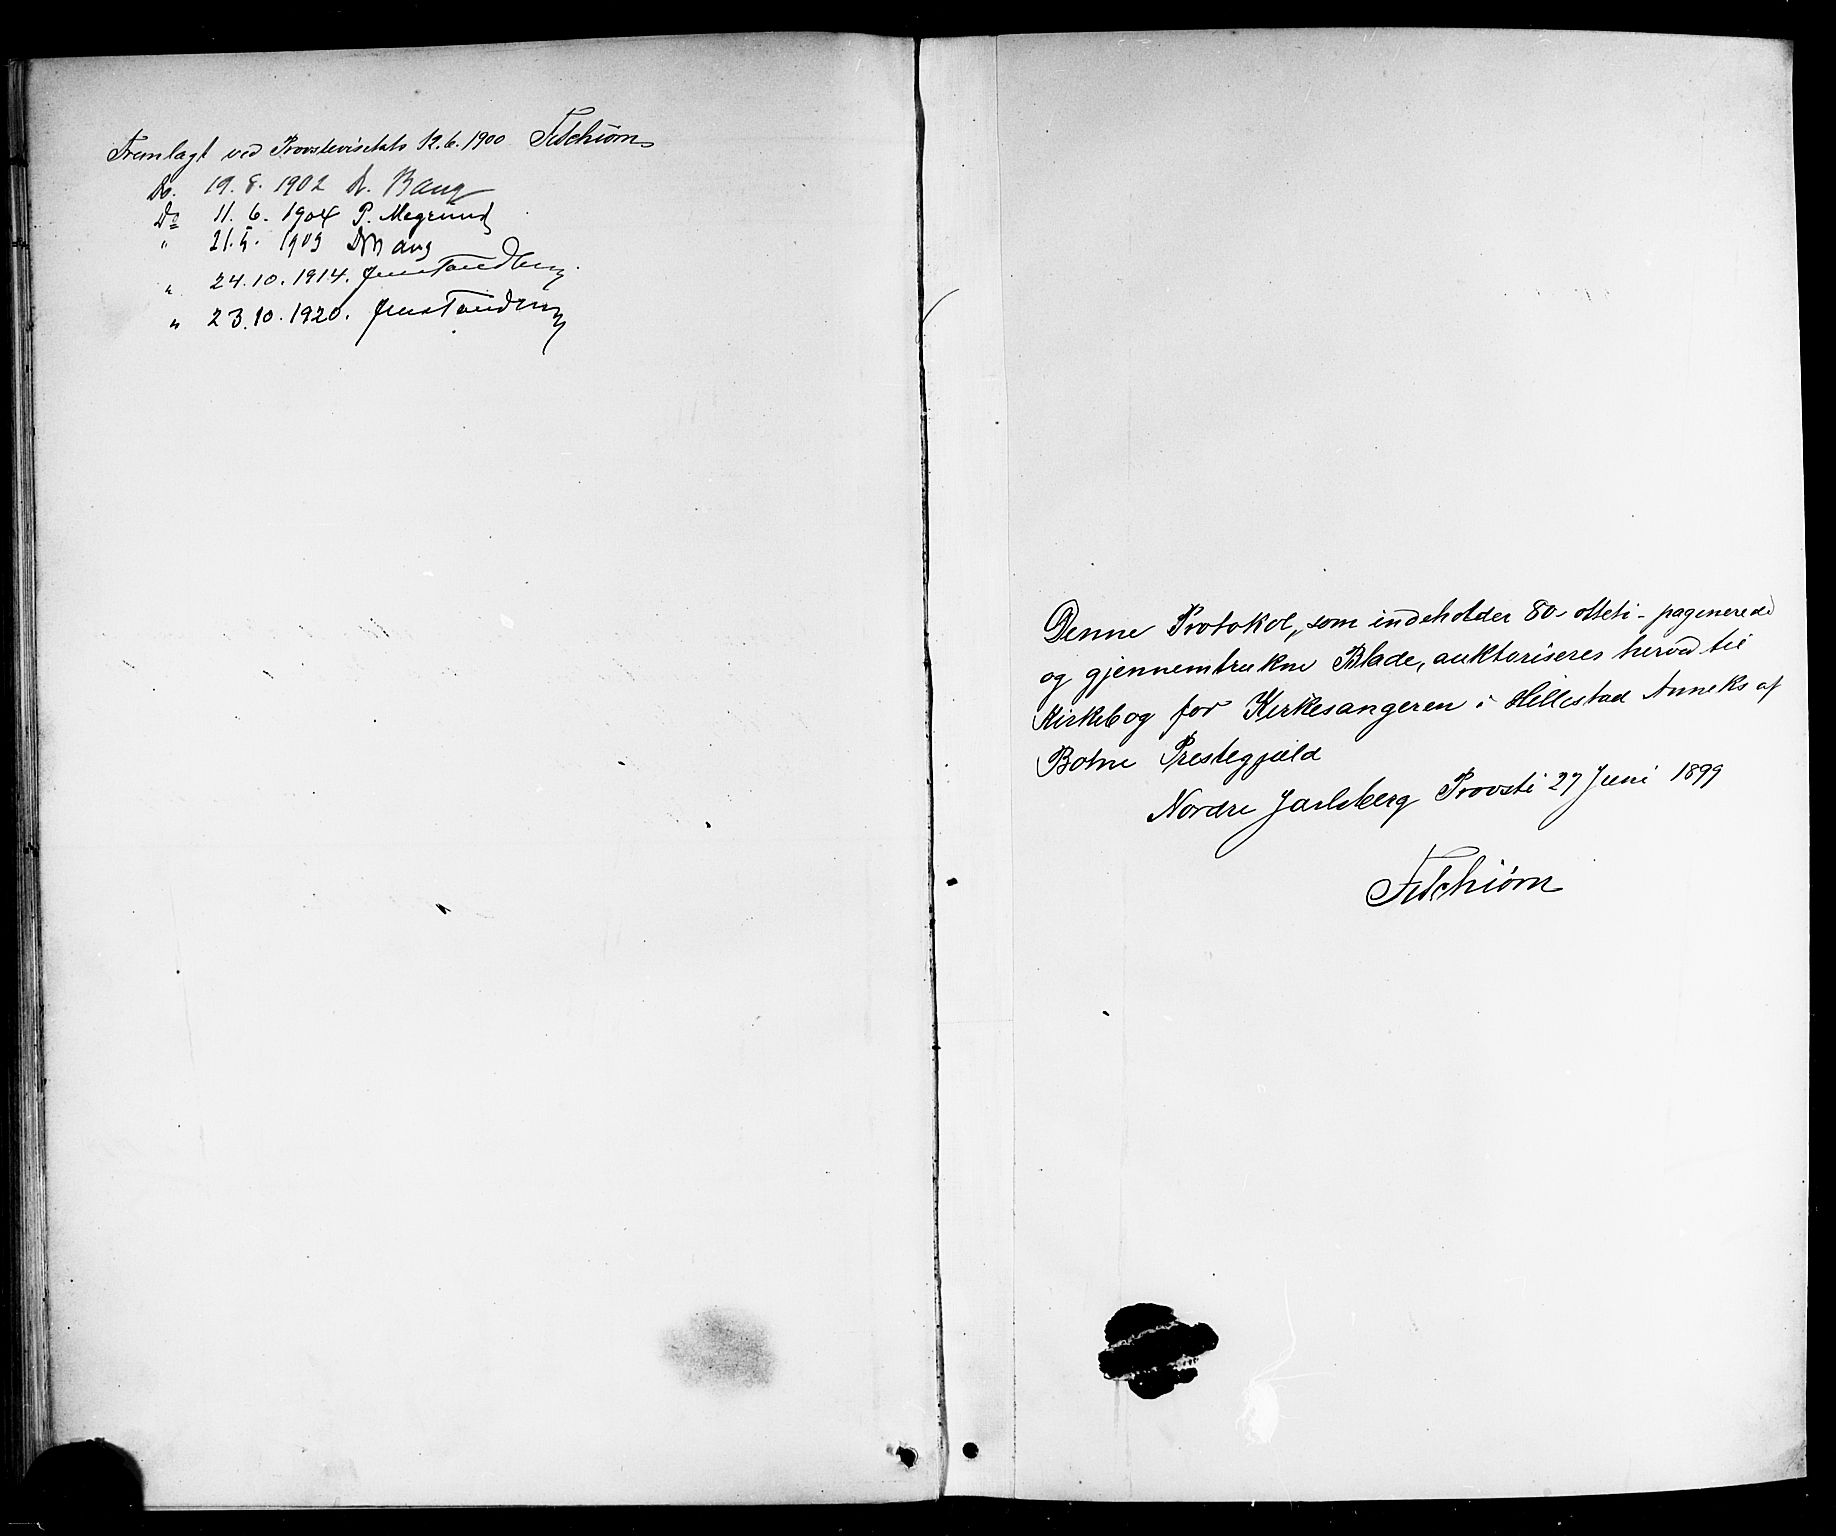 Fremlagt ved Provstevisitats 12.6.1900 FSchiørn
Do. 19.8.1902 A. Bang
Do 11.6.1904 P. Magrund
" 21.5. 1909 Bang
" 24.10.1914. Jens Tandberg
" 23.10.1920. Jens Tandberg
Denne Protokol, som indeholder 80 - otteti - paginerede
og gjennemtrukne Blade, auktoriseres herved til
Kirkebog for Kirkesangeren i Hillestad Anneks af
Botne Prestegjæld
Nordre Jarlsberg Provsti 27 Juni 1899
FSchiørn